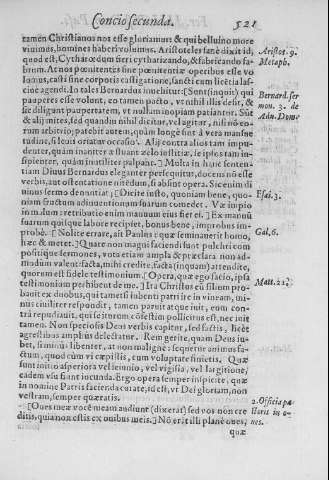 Concio secunda. 521
tamen Christianos not esse gloriamur & qui belluino more
vivimus, homines haberi volumus. Aristoteles sanè dixit id,
quod est, Cytharœdum fieri cytharizando, & fabricando fa-
brum. At nos pœnitentes sine pœnitentiæ operibus esse vo
lumus, casti sine corporis castigatione, sancti cum licentia las-
cinè agendi. In tales Bernardus invehitur: [Sunt (inquit) qui
pauperes esse volunt, eo tamen pacto, vt nihil illis desit, &
sic diligunt paupertatem, vt nullam inopiam patiantur. Sũt
& alij mites, sed quandiu nihil dicitur, vel agitur, nisi
arbitrio; patebit autem, quàm longè sint à vera mansue
tudine, si leuis oriatur occasio. Alij contra alios tam impu-
denter, quàm inaniter æstuant zelo iustitiæ, se ipsos tam in-
sipienter, quàm inutiliter palpant.] Multa in hanc senten-
tiam Diuus Bernardus eleganter persequitur, docens nõ esse
verbis, aut ostentatione nitẽdum, si absint opera. Sic enim di
uinus sermo denuntiat, [Dicite iusto, quoniam bene, quo-
niam fructum adinuentionum suarum comedet. Væ impio
in malum: retributio enim manuum eius fiet ei.] Ex manuũ
suarum quisque labore recipiet, bonus bene, improbus im-
probè. [Nolite errare, ait Paulus: quæ seminauerit homo,
hæc & metet.] Quare non magni faciendi sunt pulchri com
positique sermones, vota etiam ampla & præclara non ad-
modum valent: facta, mihi credite, facta (inquam) attendite,
quorum est fidele testimonium. [Opera, quæ ego facio, ipsa
testimonium perhibent de me.] Ita Christus eũ filium pro-
bauit ex duobus, qui tametsi iubenti patri ire in vineam, mi-
nus ciuiliter respondit, tamen paruit atque iuit, eum con-
trà repudiauit, qui se iturum cõsestim pollicitus est, nec iuit
tamen. Non speciosis Deus verbis capitur, sed factis, licèt
agrestibus amplius delectatur. Rem gerite, quam Deus iu-
bet, si minùs libenter, at non malignè: sequetur animus fa-
ctum, quod cùm vi expellis, cum voluptate finietis. Quæ
sunt initio asperiora vel ieiunio, vel vigilia, vel largitione,
eadem vsu fiunt iucunda. Ergo opera semper inspicite, quæ
in nomine Patris facienda curate, id est, vt Dei gloriam, non
vestram, semper quæratis.
[Oues meæ vocẽ meam audiunt (dixerat) sed vos non cre
ditis, quia non estis ex ouibus meis.] Nõ erãt illi planè oues,
quæ
Aristot. 9.
Metaph.
Bernard. ser
mon. 3. de
Adu. Domi
Esai. 3.
Gal. 6.
Matt. 21.
2. Officia pa
storis in o-
nes.